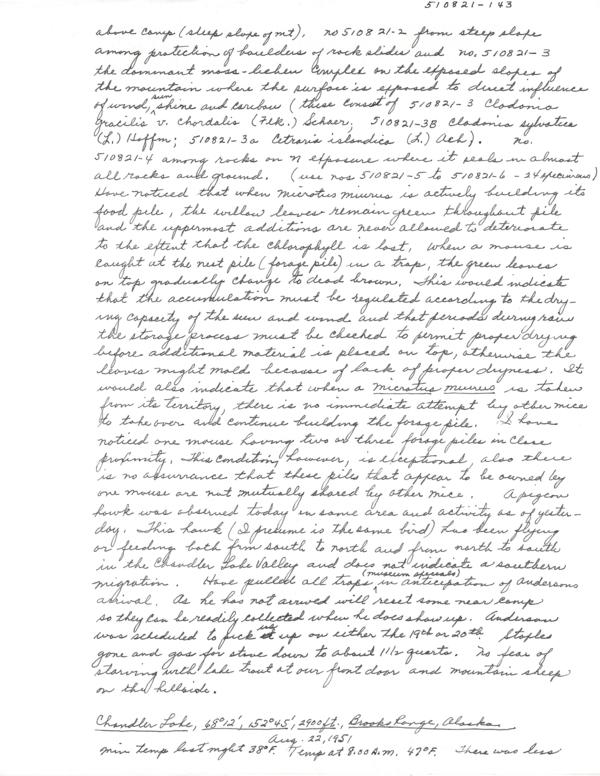 510821-143
above camp (steep slope of mt). no 510821-2 from steep slope
among protection of boulders of rock slides and no. 510821-3
the dominant moss-lichen complex on the exposed slopes of
the mountain where the surface is exposed to direct influence
of wind, sun shine and caribou (these consist of 510821-3 Cladonia
gracilis v. chordalis (Flk.) Schaer; 510821-3B Cladonia sylvatica
(L.) Hoffm; 510821-3a Cetraria islandica (L.) Ach). no.
510821-4 among rocks on N exposure where it seals in almost
all rocks and ground. (use nos 510821-5 to 510821-6 - 24 specimens)
Have noticed that when microtus miurus is actively building its
food pile, the willow leaves remain green throughout pile
and the uppermost additions are never allowed to deteriorate
to the extent that the chlorophyll is lost, when a mouse is
caught at the nest pile (forage pile) in a trap, the green leaves
on top gradually change to dead brown. This would indicate
that the accumulation must be regulated according to the dry-
ing capacity of the sun and wind and that periods during rain
the storage process must be checked to permit proper drying
before additional material is placed on top, otherwise the
leaves might mold because of lack of proper dryness. It
would also indicate that when a microtus miurus is taken
from its territory, there is no immediate attempt by other mice
to take over and continue building the forage pile. I have
noticed one mouse having two or three forage piles in close
proximity. This condition, however, is exceptional, also there
is no assurrance that these piles that appear to be owned by
one mouse are not mutually shared by other mice. A pigeon
hawk was observed today in same area and activity as of yester-
day. This hawk (I presume is the same bird) has been flying
or feeding both from south to north and from north to south
in the Chandler Lake Valley and does not indicate a southern
migration. Have pulled all traps (museum specials) in anticipation of Andersons
arrival. As he has not arrived will reset some near camp
so they can be readily collected when he does show up. Anderson
was scheduled to pick us up on either the 19th or 20th. Staples
gone and gas for stove down to about 1 1/2 quarts. No fear of
starving with lake trout at our front door and mountain sheep
on the hillside.
Chandler Lake, 68°12', 152°45', 2900 ft., Brooks Range, Alaska
Aug. 22, 1951
min temp last night 38°F. Temp at 8:00 A.M. 47°F. There was less